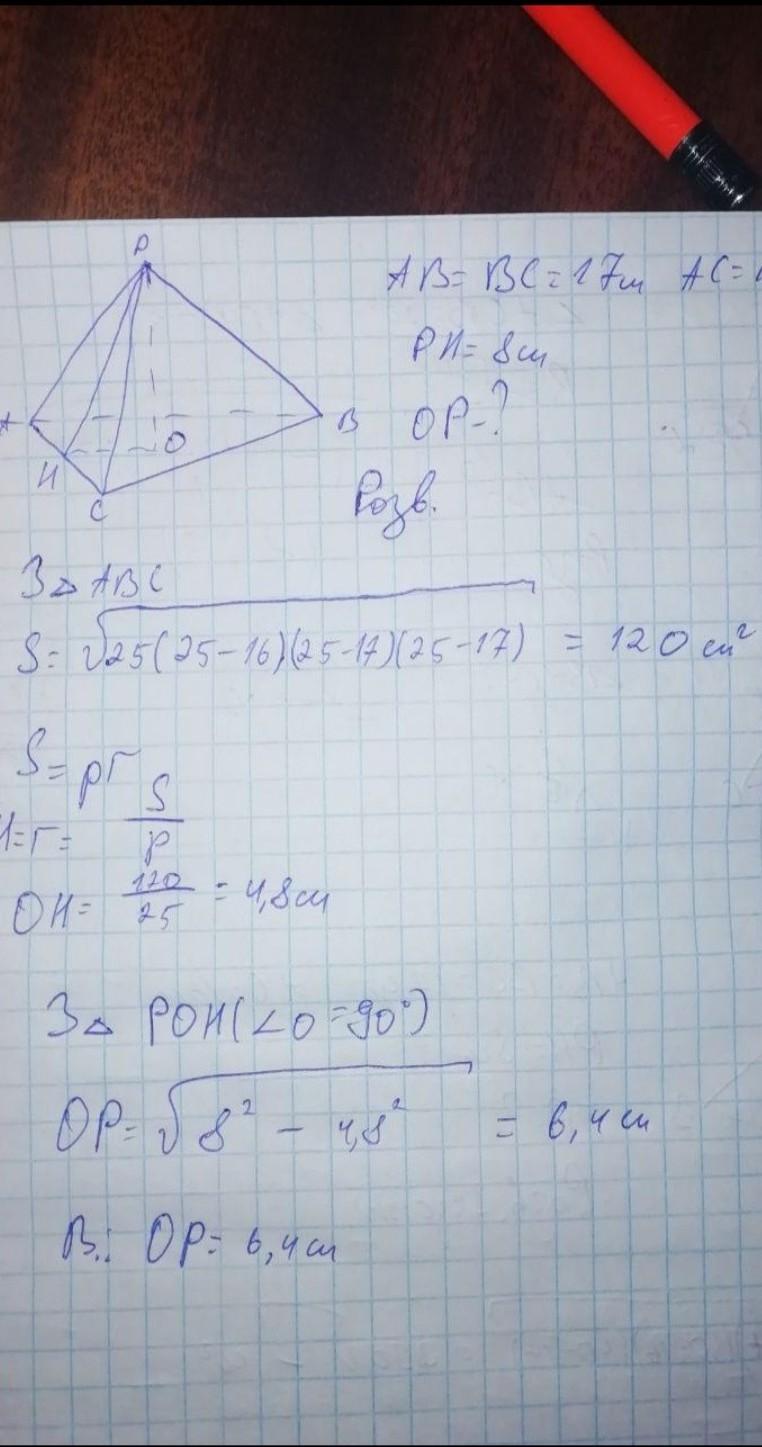 P
A
B
O
H
C
AB = BC = 17см AC =
PH = 8см
OP - ?
Розв.
З △ ABC
S = √25(25-16)(25-17)(25-17) = 120 см²
S = pr
H = r = S/p
OH = 120/25 = 4,8см
З △ POH (∠O = 90°)
OP = √8² - 4,8² = 6,4 см
В.: OP = 6,4 см